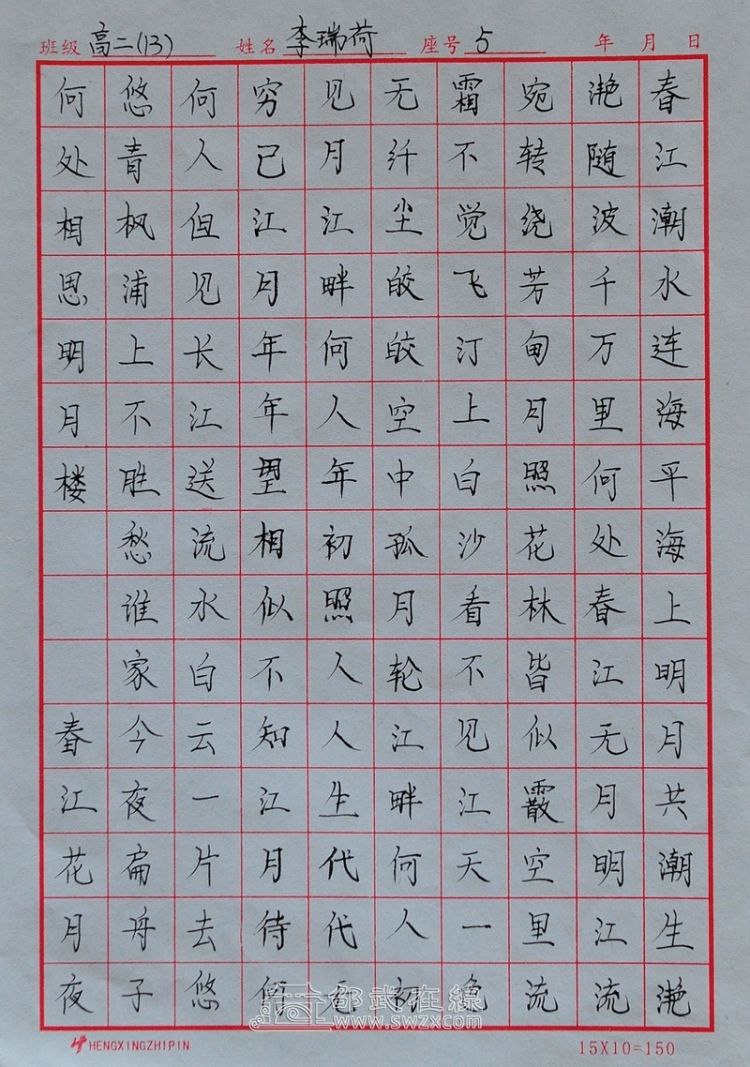 班级 高二(13) 姓名 李瑞荷 座号 5 年 月 日
春江潮水连海平海上明月共潮生滟
滟随波千万里何处春江无月明江流
宛转绕芳甸月照花林皆似霰空里流
霜不觉飞汀上白沙看不见江天一色
无纤尘皎皎空中孤月轮江畔何人初
见月江畔何人年初照人人生代代
穷已江月年年望相似不知江月待何
何人但见长江送流水白云一片去悠
悠青枫浦上不胜愁谁家今夜扁舟子
何处相思明月楼 春江花月夜
HENGXINGZHIPIN 15X10=150
都武在線
www.swzx.com